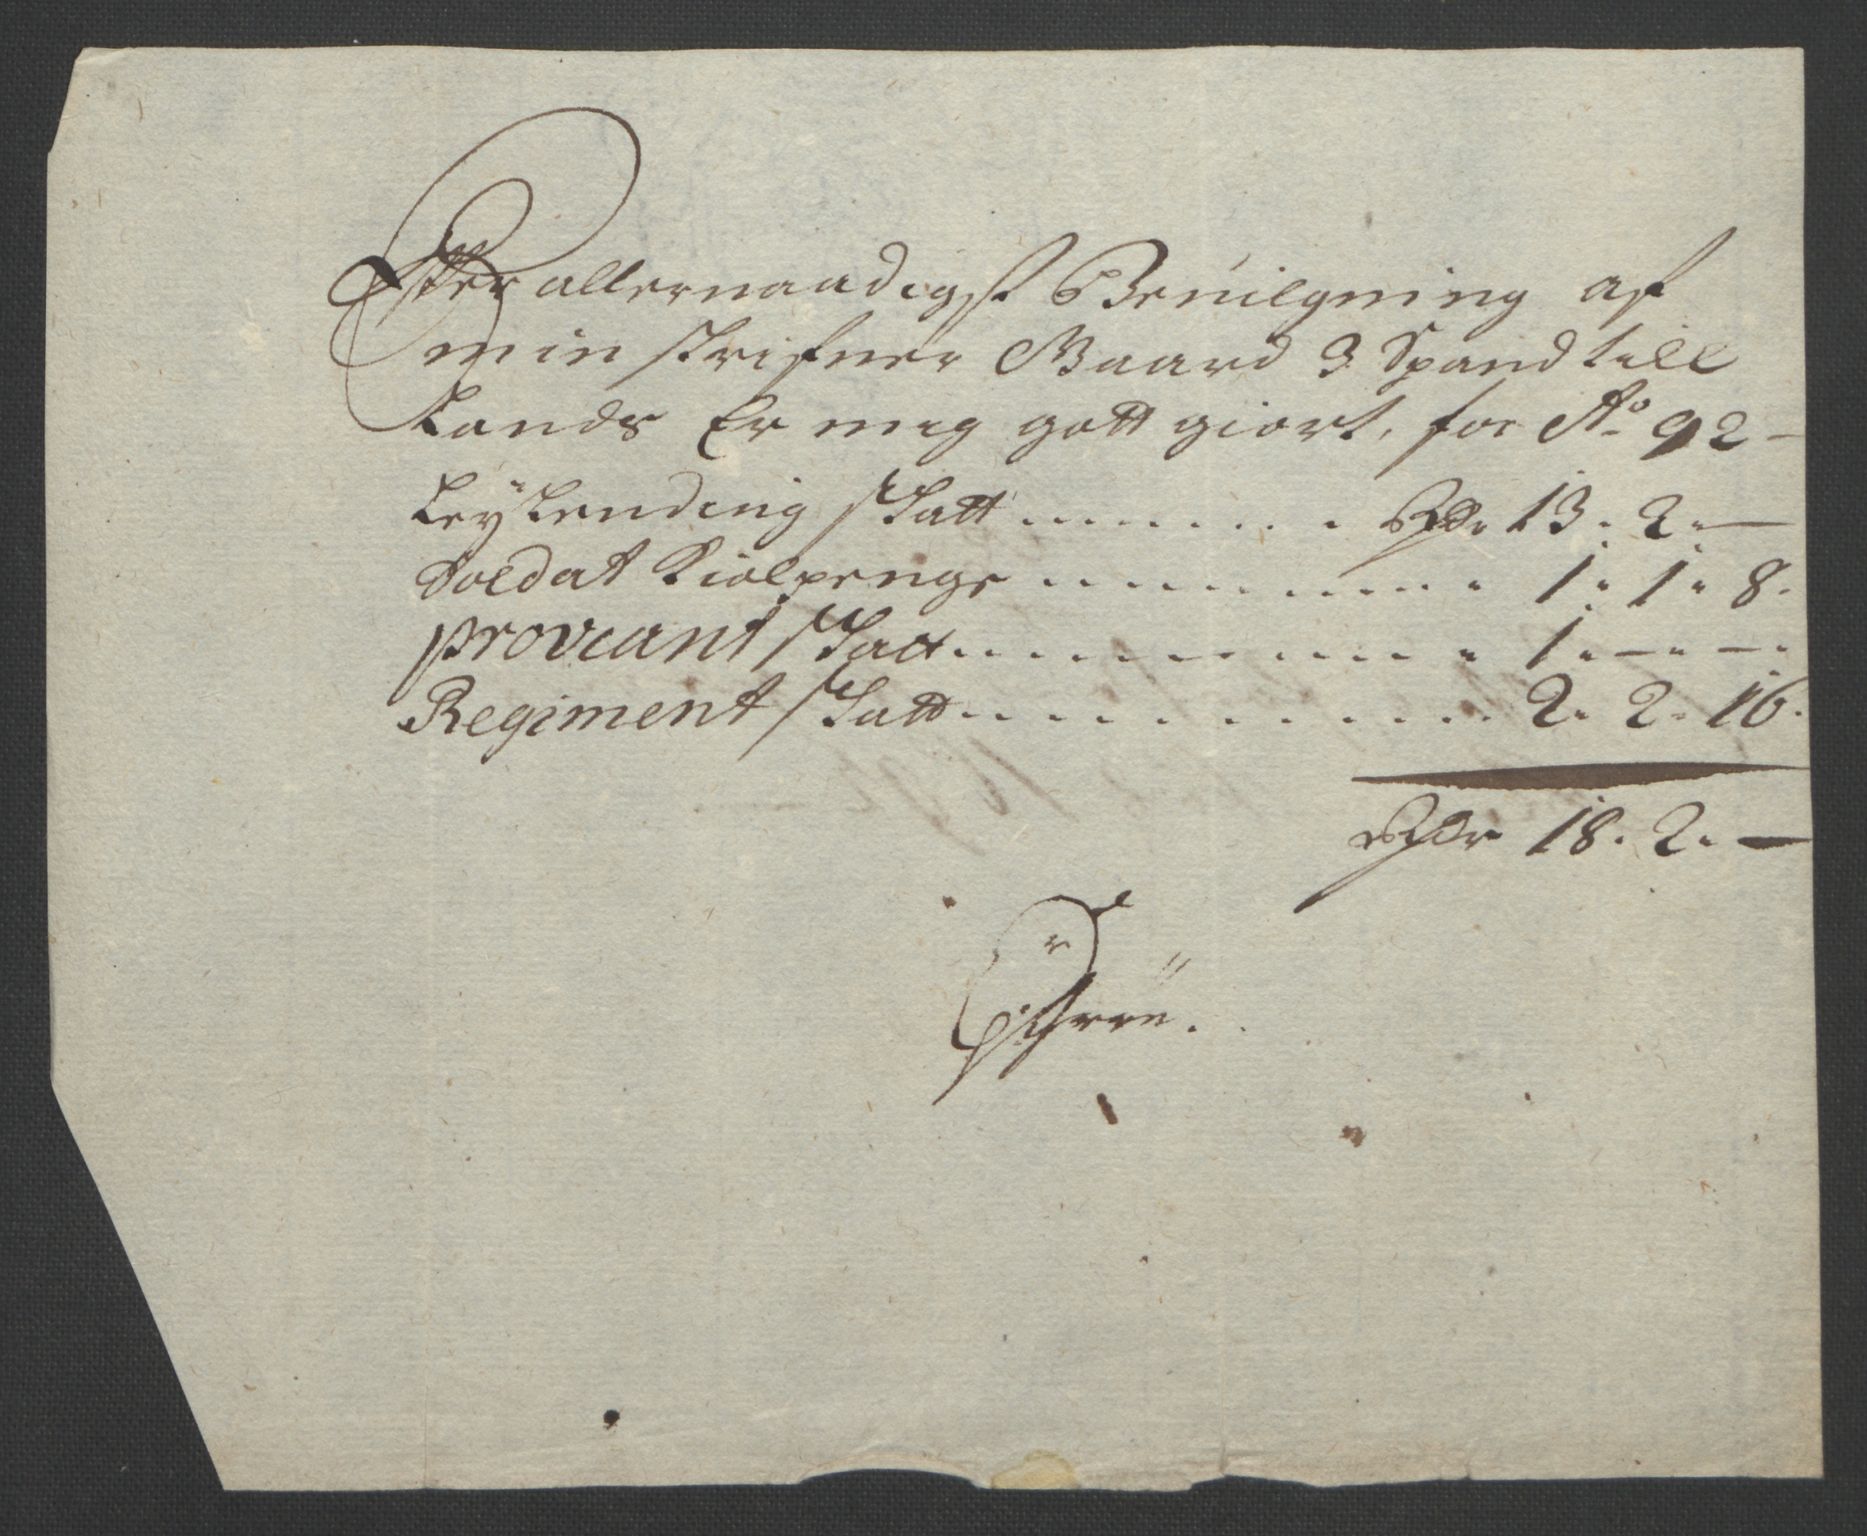 Efter allernaadigst Beuilgning af
min skrifuer Gaard 3 Spand till
Lands Er mig gott giort, for Ao 92 —
Leÿlending skatt . . . . . . . . Rdr 13. 2. —
Soldat Kiolpenge . . . . . . . . . . 1. 1. 8.
proviant skatt . . . . . . . . . . . 1. — . — .
Regiment skatt . . . . . . . . . . . 2. 2. 16.
Rdr 18. 2. —